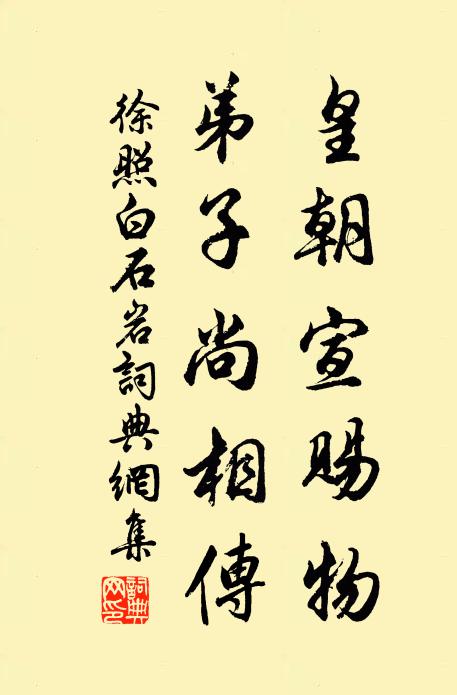 皇朝宣賜物
弟子尚相傳
徐照白石岩詞典網集
詞典網印